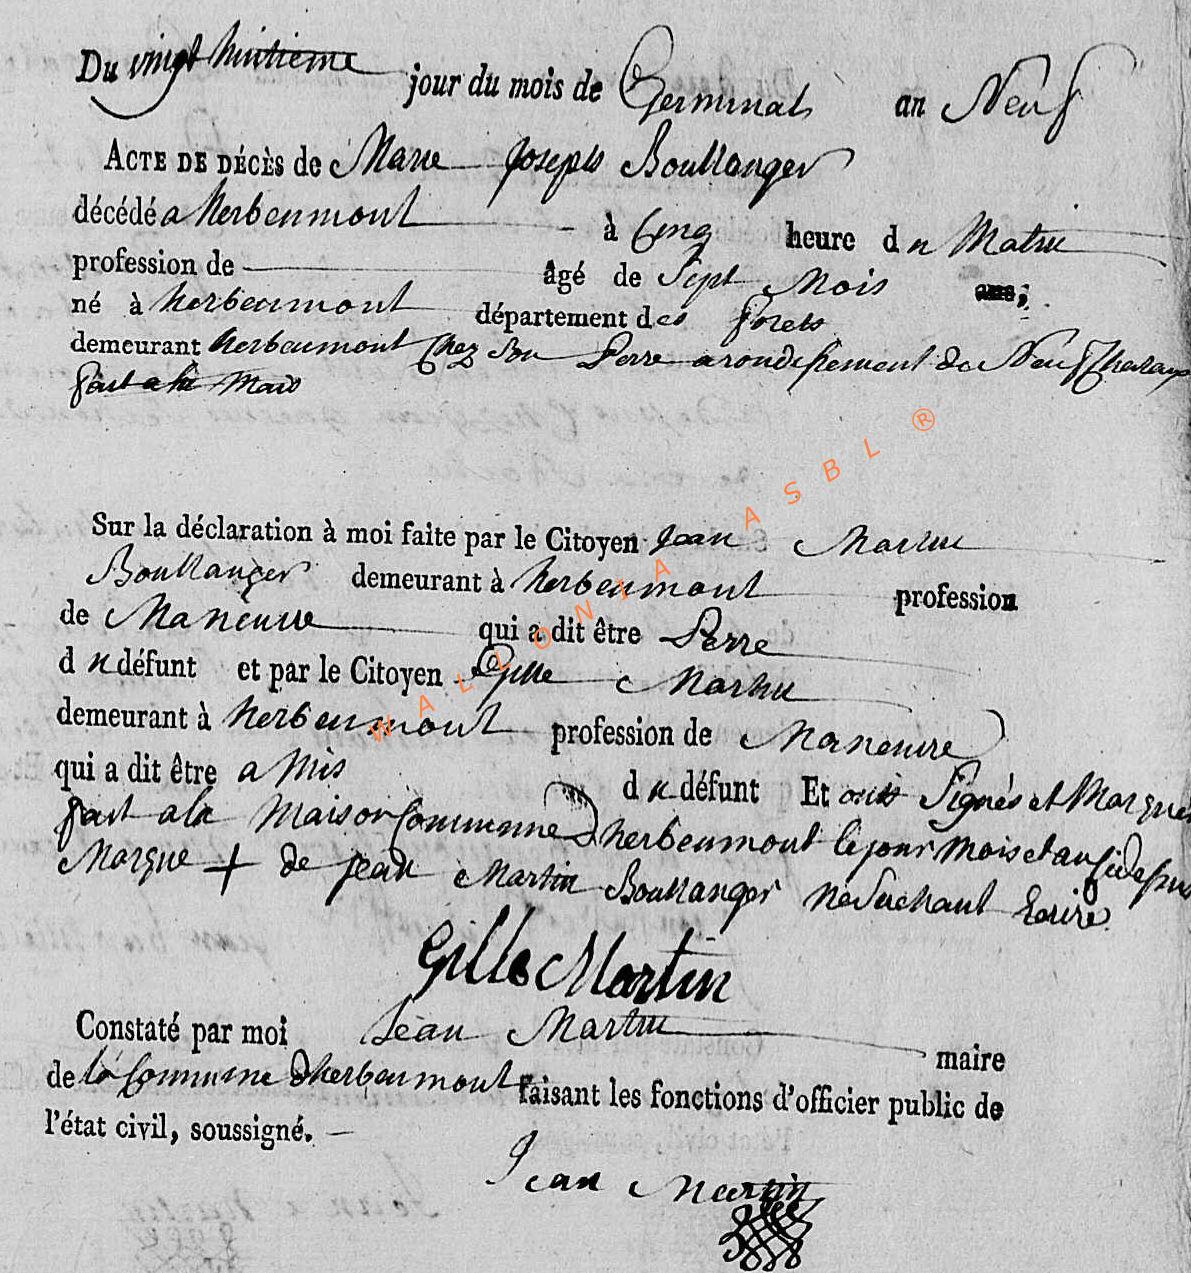 Du vingt huitieme jour du mois de Germinal an Neuf
ACTE DE DÉCÈS de Marie Joseph Boullanger
décédé a herbeumont à Cinq heure du Matin
profession de âgé de Sept Mois ans;
né à herbeumont département des forets
demeurant herbeumont Chez Son Perre arondissement de Neufchateau
fait a la Mais
Sur la déclaration à moi faite par le Citoyen Jean Martin
Boullanger demeurant à herbeumont profession
de Maneuvre qui a dit être Perre
du défunt et par le Citoyen Gille Martin
demeurant à herbeumont profession de Maneuvre
qui a dit être amis du défunt Et onts Signés et Marqué
fait a la Maison Commune Dherbeumont le jour Mois et an Sidepus
Marque + de Jean Martin Boullanger Ne Sachant Ecrire
Gille Martin
Constaté par moi Jean Martin maire
de la Commune Dherbeumont faisant les fonctions d'officier public de
l'état civil, soussigné.
Jean Martin
WALLONIA ASBL ®